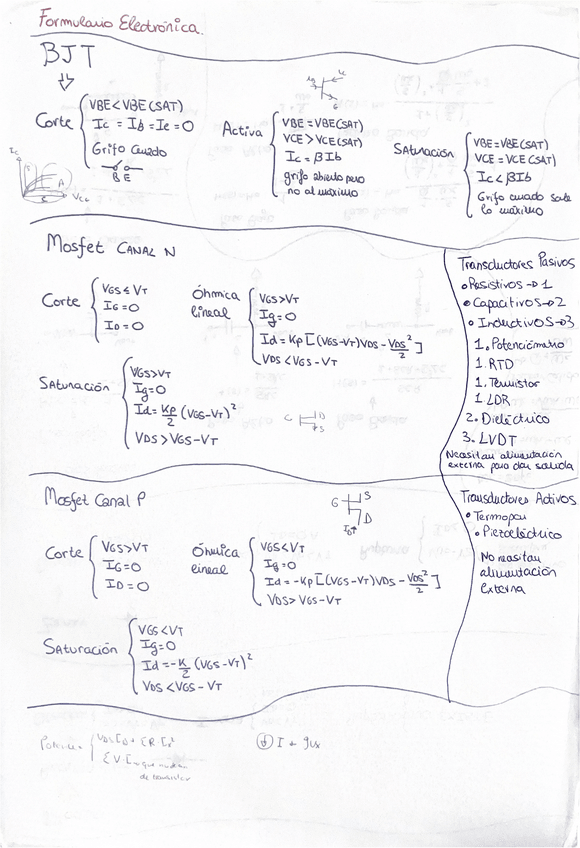 Formulario Electrónica.
BJT
Corte
VBE < VBE(SAT)
Ic = Ib = Ie = 0
Grifo Cerrado
B E
Ic
A
S
C
VCE
Activa
VBE = VBE(SAT)
VCE > VCE(SAT)
Ic = βIb
grifo abierto pero
no al máximo
Saturación
VBE = VBE(SAT)
VCE = VCE(SAT)
Ic < βIb
Mosfet CANAL N
Corte
VGS ≤ VT
IG = 0
ID = 0
Óhmica
lineal
VGS > VT
Ig = 0
Id = Kp [(VGS-VT)VDS - VDS²/2]
VDS < VGS - VT
Saturación
VGS > VT
Ig = 0
Id = Kp/2 (VGS-VT)²
VDS > VGS - VT
D
S
Transductores Pasivos
• Resistivos → 1
• Capacitivos → 2
• Inductivos → 3
1. Potenciómetro
1. RTD
1. Termistor
1. LDR
2. Dieléctrico
3. LVDT
Necesitan alimentación
externa para dar salida
Mosfet Canal P
G
S
D
Corte
VGS > VT
IG = 0
ID = 0
Óhmica
lineal
VGS < VT
Ig = 0
Id = -Kp [(VGS-VT)VDS - VDS²/2]
VDS > VGS - VT
Saturación
VGS < VT
Ig = 0
Id = -K/2 (VGS-VT)²
VDS < VGS - VT
Transductores Activos
• Termopar
• Piezoeléctrico
No necesitan
alimentación
externa